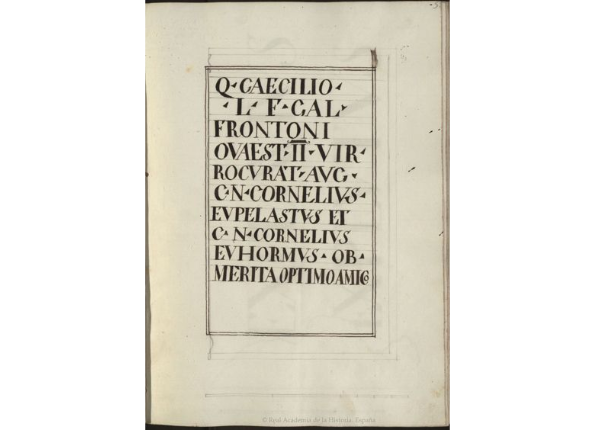 Q·CAECILIO·
·L·F·GAL·
FRONTONI
OVAEST·II·VIR·
ROCVRAT·AVG·
C·N·CORNELIVS·
EVPELASTVS ET
C·N·CORNELIVS
EVHORMVS·OB·
MERITA OPTIMO AMICO
© Real Academia de la Historia. España